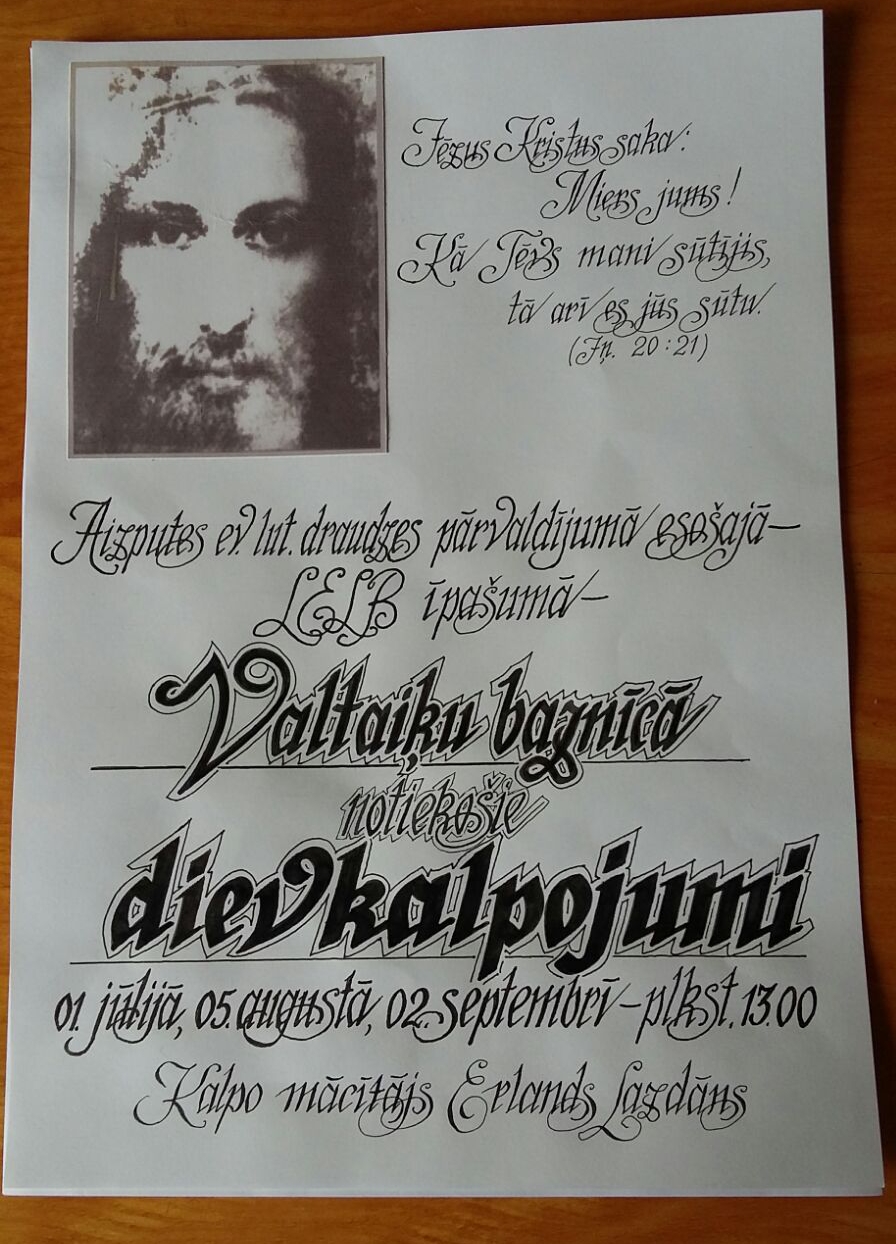 Jēzus Kristus saka:
Miers jums!
Kā Tēvs mani sūtījis,
tā arī es jūs sūtu.
(Jņ. 20:21)
Aizputes ev. lut. draudzes pārvaldījumā esošajā –
LELB īpašumā –
Valtaiķu baznīcā
notiekošie
dievkalpojumi
01. jūlijā, 05. augustā, 02. septembrī – plkst. 13.00
Kalpo mācītājs Erlands Lazdāns